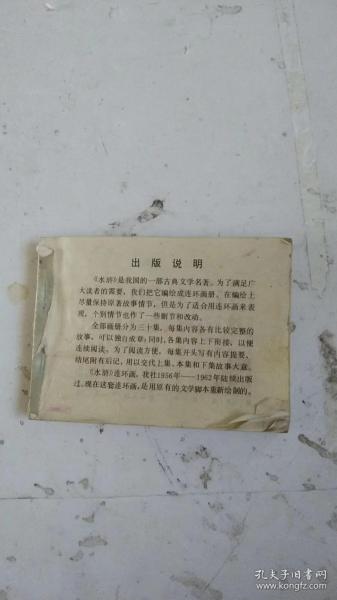 出版说明
《水浒》是我国的一部古典文学名著。为了满足广
大读者的需要，我们把它编绘成连环画册。在编绘上
尽量保持原著故事情节，但是为了适合用连环画来表
现，个别情节也作了一些删节和改动。
全部画册分为三十集，每集内容各有比较完整的
故事，可以独自成章；同时，各集内容上下衔接，以便
连续阅读。为了阅读方便，每集开头写有内容提要，
结尾附有后记，用以交代上集、本集和下集故事大意。
《水浒》连环画，我社1956年——1962年陆续出版
过。现在这套连环画，是用原有的文学脚本重新绘制的。
孔夫子旧书网
www.kongfz.com